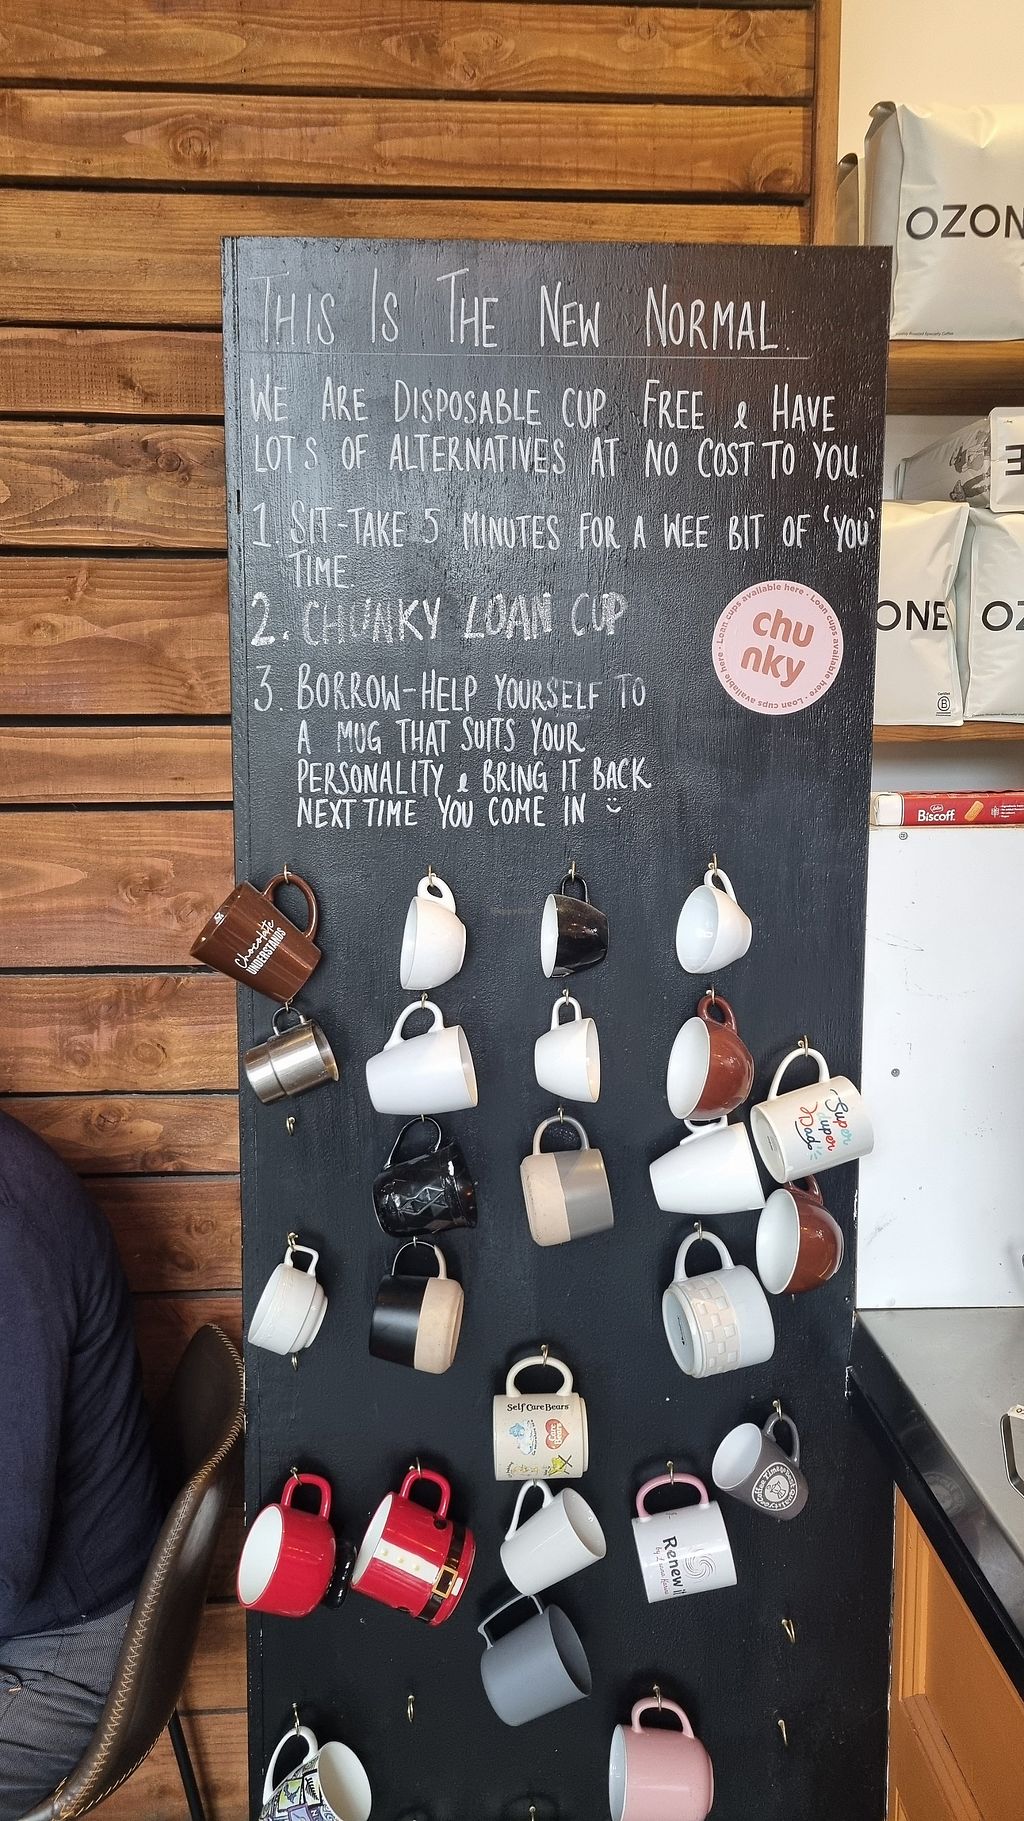 THIS IS THE NEW NORMAL.
WE ARE DISPOSABLE CUP FREE & HAVE
LOTS OF ALTERNATIVES AT NO COST TO YOU
1. SIT-TAKE 5 MINUTES FOR A WEE BIT OF 'YOU'
TIME.
2. CHUNKY LOAN CUP
3. BORROW-HELP YOURSELF TO
A MUG THAT SUITS YOUR
PERSONALITY & BRING IT BACK
NEXT TIME YOU COME IN
Loan cups available here · Loan cups available here · Loan cups available here ·
chu
nky
OZON
E
ONE
OZ
Certified
B
Biscoff
Chocolate
UNDERSTANDS
Super
duper
Dad
Self Care Bears
Care Bears
Renew